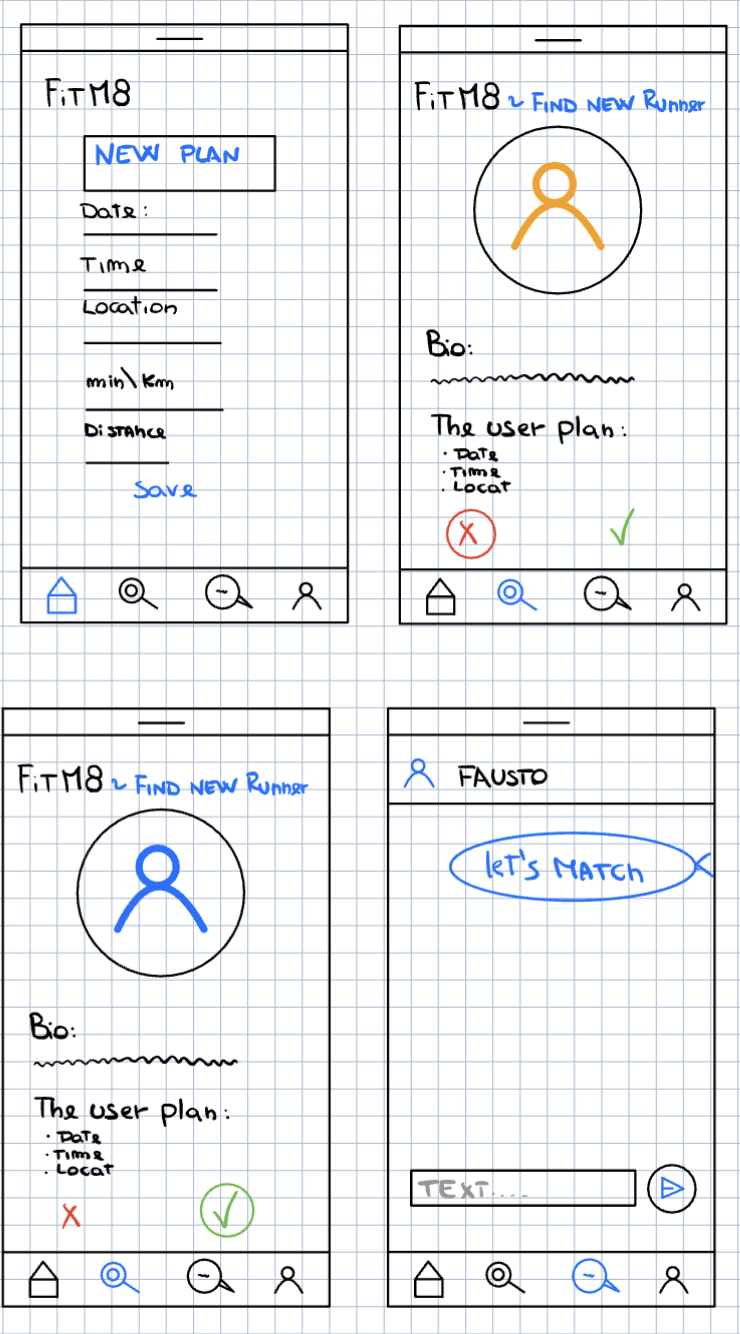 FiTM8
NEW PLAN
Date:
Time
Location
min\Km
DiSTAnce
Save
FiTM8 ~ FIND NEW Runner
Bio:
The user plan:
· Date
· Time
. Locat
X
FiTM8 ~ FIND NEW Runner
Bio:
The user plan:
· Date
· Time
. Locat
X
FAUSTO
leT's MATCh
TEXT....